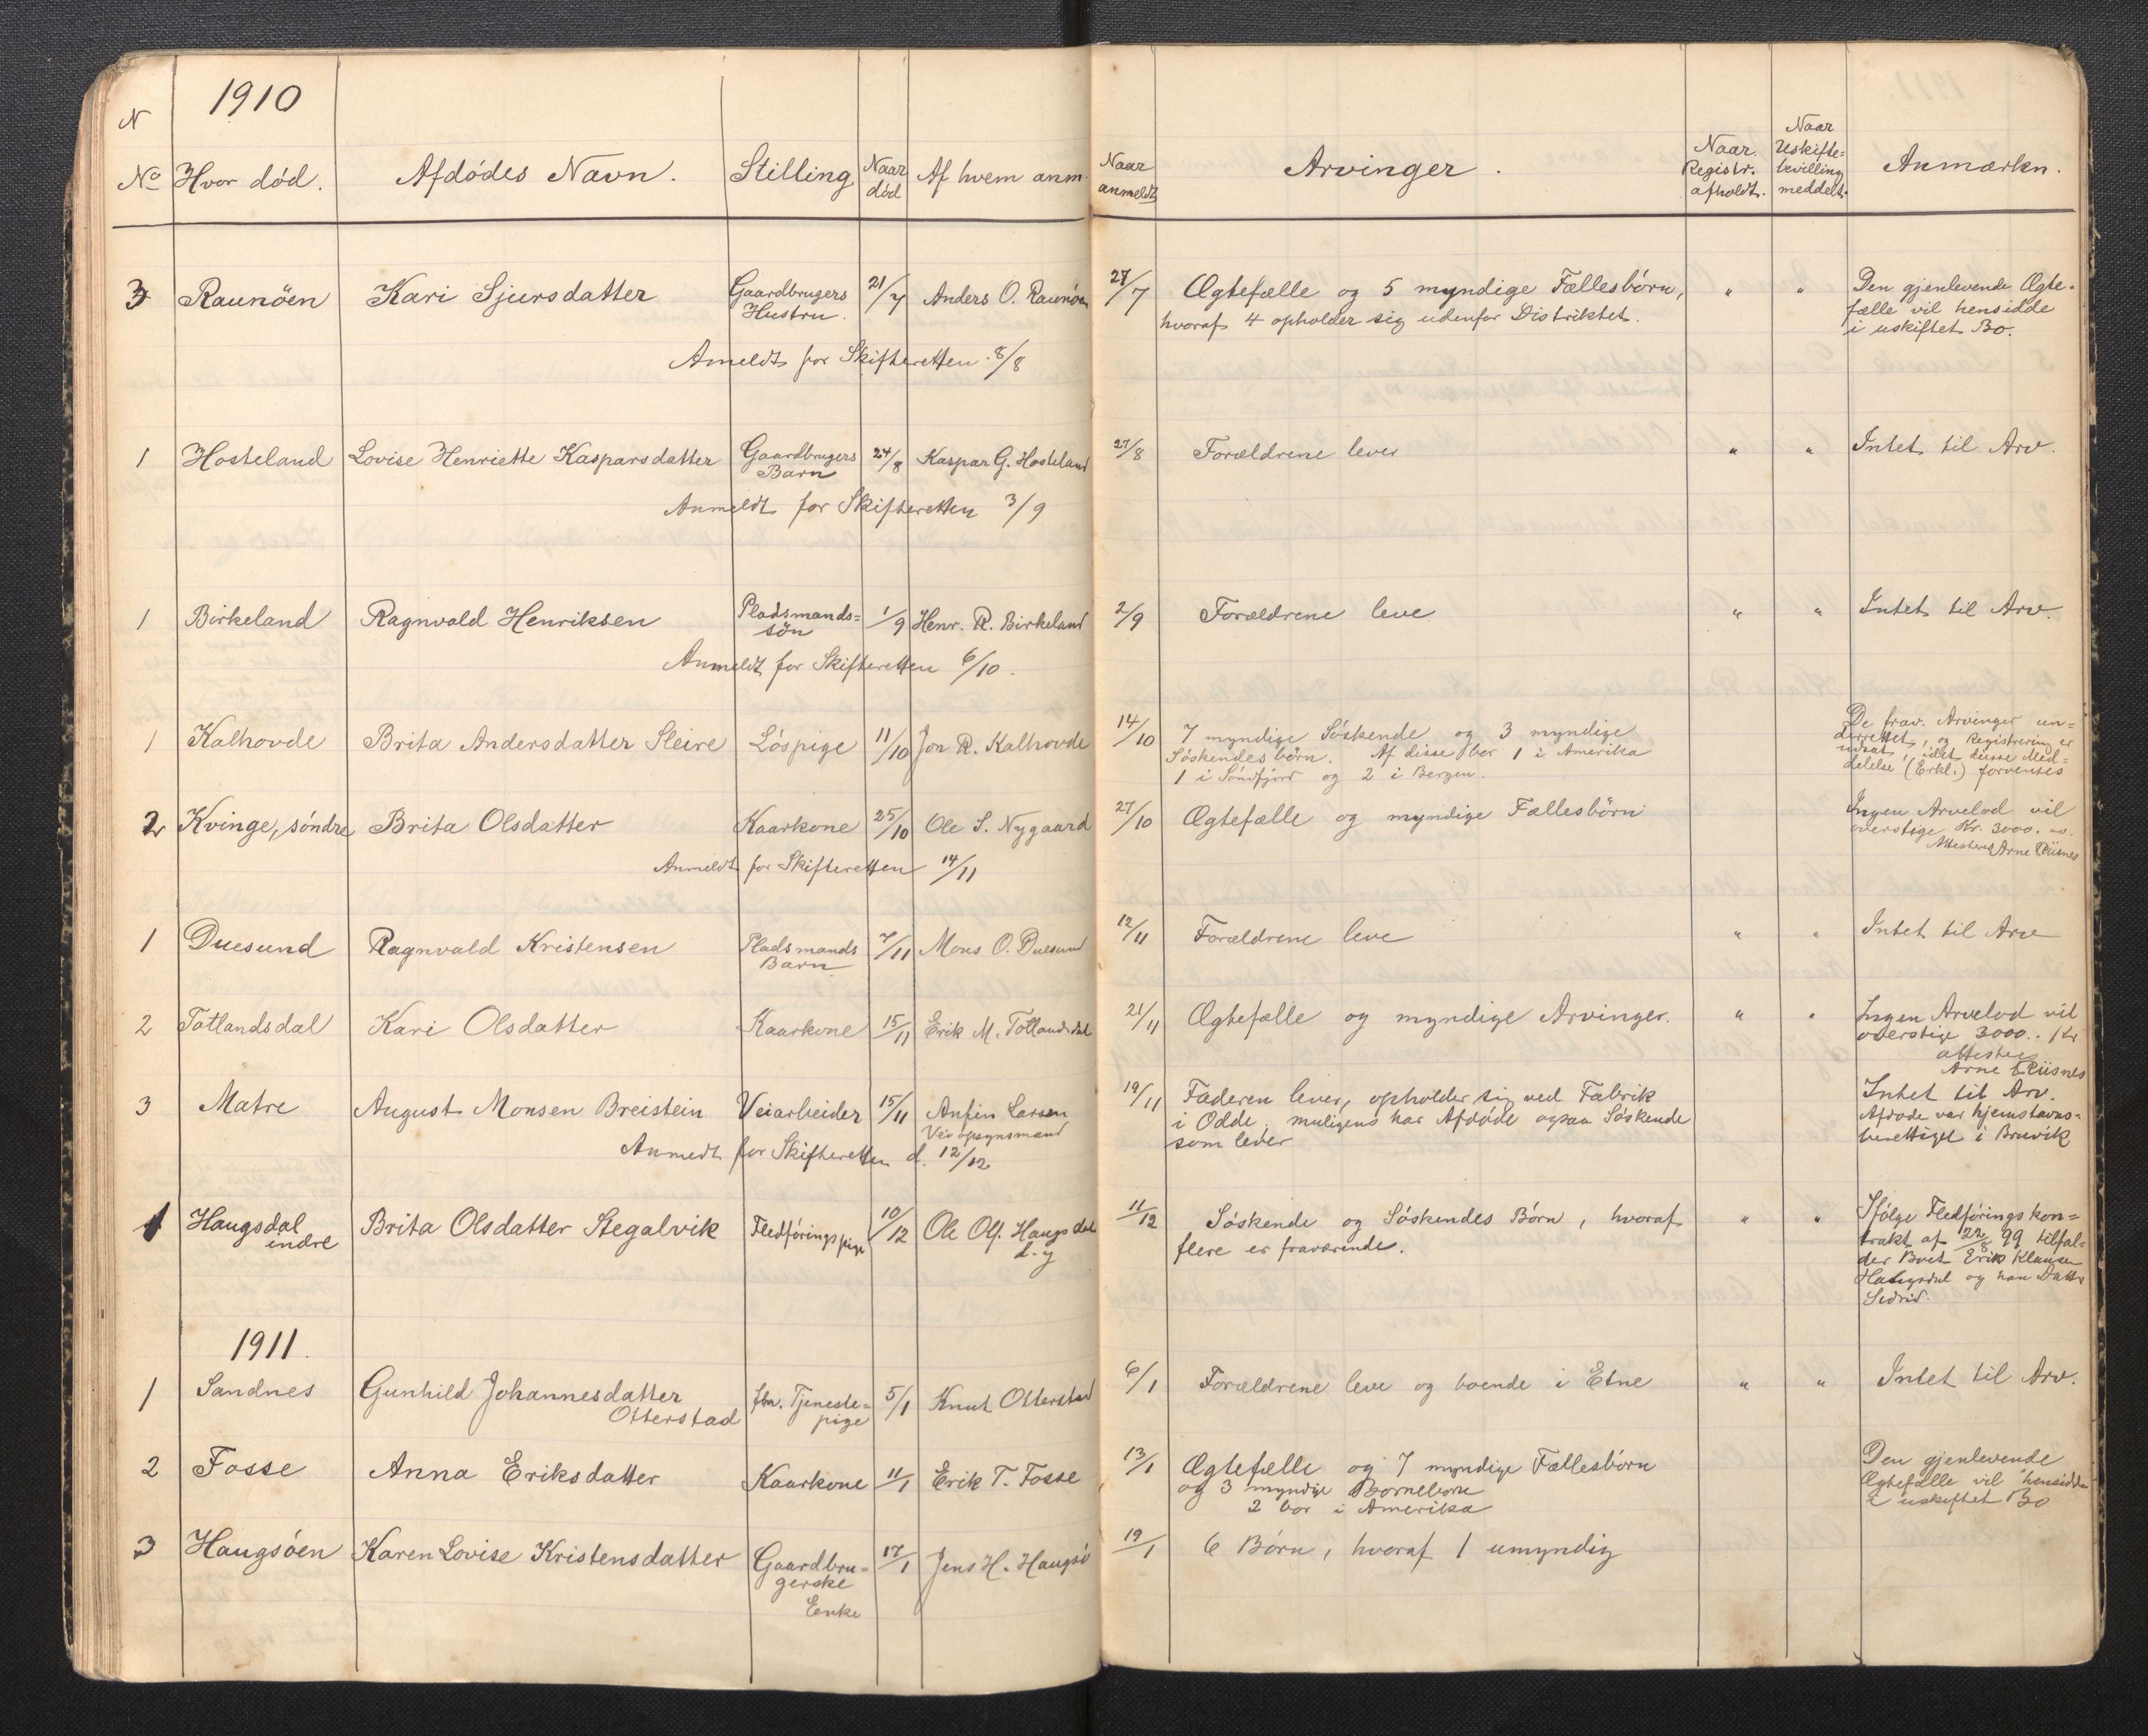 1910
N
No Hvor död. Afdödes Navn. Stilling Naar död Af hvem anm. Naar anmeldt Arvinger. Naar Registr. afholdt. Naar Uskifte-bevilling meddelt. Anmærkn.
3 Raunöen Kari Sjursdatter Gaardbrugers 21/7 Anders O. Raunöen 27/7 Ægtefælle og 5 myndige Fællesbörn, " " Den gjenlevende Ægte-
Hustru. hvoraf 4 opholder sig udenfor Distriktet. fælle vil hensidde
i uskiftet Bo.
Ameldt for Skifteretten 8/8
1 Hosteland Lovise Henriette Kasparsdatter Gaardbrugers 24/8 Kaspar G. Hosteland 27/8 Forældrene lever " " Intet til Arv.
Barn
Anmeldt for Skifteretten 3/9
1 Birkeland Ragnvald Henriksen Pladsmands= 1/9 Henr. R. Birkeland 2/9 Forældrene leve " " Intet til Arv.
sön
Anmeldt for Skifteretten 6/10.
1 Kalhovde Brita Andersdatter Sleire Löspige 11/10 Jon R. Kalhovde 14/10 7 myndige Söskende og 3 myndige De frav. Arvinger un=
Söskendesbörn. Af disse bor 1 i Amerika derrettet, og Registrering er
1 i Söndfjord og 2 i Bergen. udsat, idet disse Med=
delelse (Erkl.) forventes
2 Kvinge, söndre Brita Olsdatter Kaarkone 25/10 Ole S. Nygaard 27/10 Ægtefælle og myndige Fællesbörn Ingen Arvelod vil
overstige Kr. 3000.
Attesteres Arne Riisnes
Anmeldt for Skifteretten 14/11
1 Duesund Ragnvald Kristensen Pladsmands 7/11 Mons O. Duesund 12/11 Forældrene leve " " Intet til Arv
Barn
2 Totlandsdal Kari Olsdatter Kaarkone 15/11 Erik M. Totlandsdal 21/11 Ægtefælle og myndige Arvinger. " " Ingen Arvelod vil
overstige 3000.. Kr
attesteres
Arne Riisnes
3 Matre August Monsen Breistein Veiarbeider 15/11 Anfin Larsen 19/11 Faderen lever, opholder sig ved Fabrik Intet til Arv.
Veiopsynsmand i Odde, muligens har Afdöde ogsaa Söskende Afdöde var hjemstavns-
som lever berettiget i Bruvik
Anmedt for Skifteretten d. 12/12
1 Haugsdal Brita Olsdatter Stegalvik Fledföringspige 10/12 Ole Ols. Haugsdal 11/12 Söskende og Söskendes Börn, hvoraf " " Ifölge Fledföringskon=
indre d.y flere er fraværende. trakt af 22/8 99 tilfal=
der Boet Erik Klausen
Haugsdal og han Datter
Sidrid.
1911.
1 Sandnes Gunhild Johannesdatter fhv. Tjeneste= 5/1 Knut Otterstad 6/1 Forældrene leve og boende i Etne " " Intet til Arv.
Otterstad pige
2 Fosse Anna Eriksdatter Kaarkone 11/1 Erik T. Fosse 13/1 Ægtefælle og 7 myndige Fællesbörn Den gjenlevende
og 3 myndige Börneborn Ægtefælle vil hensidde
2 bor i Amerika i uskiftet Bo
3 Haugsöen Karen Lovise Kristensdatter Gaardbru- 17/1 Jens H. Haugsö 19/1 6 Börn, hvoraf 1 umyndig
gerske
Enke